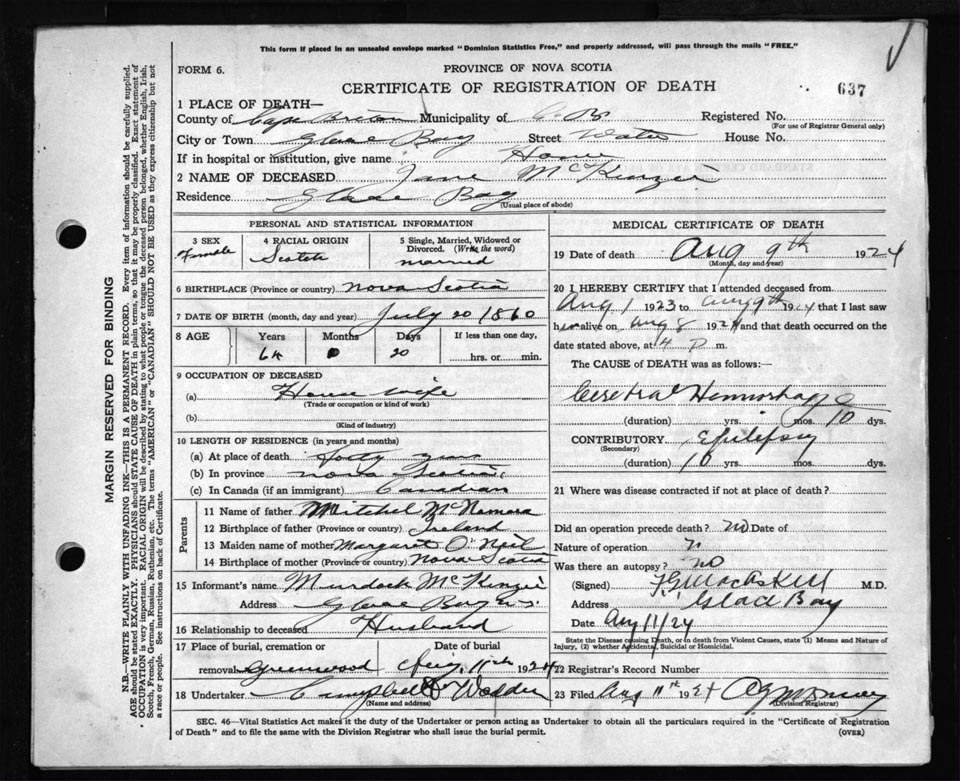 This form if placed in an unsealed envelope marked "Dominion Statistics Free," and properly addressed, will pass through the mails "FREE."
FORM 6.
PROVINCE OF NOVA SCOTIA
CERTIFICATE OF REGISTRATION OF DEATH
637
1 PLACE OF DEATH—
County of Cape Breton Municipality of C. B. Registered No.
(For use of Registrar General only)
City or Town Glace Bay Street Water House No.
If in hospital or institution, give name Home
2 NAME OF DECEASED Jane McKenzie
Residence Glace Bay
(Usual place of abode)
PERSONAL AND STATISTICAL INFORMATION
3 SEX Female
4 RACIAL ORIGIN Scotch
5 Single, Married, Widowed or Divorced. (Write the word) married
6 BIRTHPLACE (Province or country) Nova Scotia
7 DATE OF BIRTH (month, day and year) July 20 1860
8 AGE Years Months Days If less than one day,
64 0 20 hrs. or min.
9 OCCUPATION OF DECEASED
(a) House wife
(Trade or occupation or kind of work)
(b)
(Kind of industry)
10 LENGTH OF RESIDENCE (in years and months)
(a) At place of death forty years
(b) In province nova Scotia
(c) In Canada (if an immigrant) Canadian
Parents
11 Name of father Mitchel McNamara
12 Birthplace of father (Province or country) Ireland
13 Maiden name of mother Margaret O'Neil
14 Birthplace of mother (Province or country) Nova Scotia
15 Informant's name Murdock McKenzie
Address Glace Bay N.S.
16 Relationship to deceased Husband
17 Place of burial, cremation or Date of burial
removal Greenwood Aug. 11th 1924
18 Undertaker Campbell & Wadden
(Name and address)
MEDICAL CERTIFICATE OF DEATH
19 Date of death Aug 9th 1924
(Month, day and year)
20 I HEREBY CERTIFY that I attended deceased from
Aug 1 1923 to Aug 9th 1924 that I last saw
her alive on Aug 8 1924 and that death occurred on
date stated above, at 4 P m.
The CAUSE of DEATH was as follows:
Cerebral Hemorrhage
(duration) yrs. mos. 10 dys.
CONTRIBUTORY Epilepsy
(Secondary)
(duration) 10 yrs. mos. dys.
21 Where was disease contracted if not at place of death?
Did an operation precede death? no Date of
Nature of operation
Was there an autopsy? no
(Signed) M.D.
Address Glace Bay
Date Aug 11/24
State the Disease causing Death, or in death from Violent Causes, state (1) Means and Nature of
Injury, (2) whether Accidental, Suicidal or Homicidal.
22 Registrar's Record Number
23 Filed Aug 11th 1924
(Division Registrar)
SEC. 46—Vital Statistics Act makes it the duty of the Undertaker or person acting as Undertaker to obtain all the particulars required in the "Certificate of Registration
of Death" and to file the same with the Division Registrar who shall issue the burial permit. (OVER)
MARGIN RESERVED FOR BINDING
N.B.—WRITE PLAINLY WITH UNFADING INK—THIS IS A PERMANENT RECORD. Every item of information should be carefully supplied.
AGE should be stated EXACTLY. PHYSICIANS should STATE CAUSE OF DEATH in plain terms, so that it may be properly classified. Exact statement of
OCCUPATION is very important. RACIAL ORIGIN will be described by stating to what people or tongue the deceased person belonged, whether English, Irish,
Scotch, French, German, Russian, Ruthenian, etc. The terms "AMERICAN" or "CANADIAN" SHOULD NOT BE USED as they express citizenship but not
a race or people. See instructions on back of Certificate.